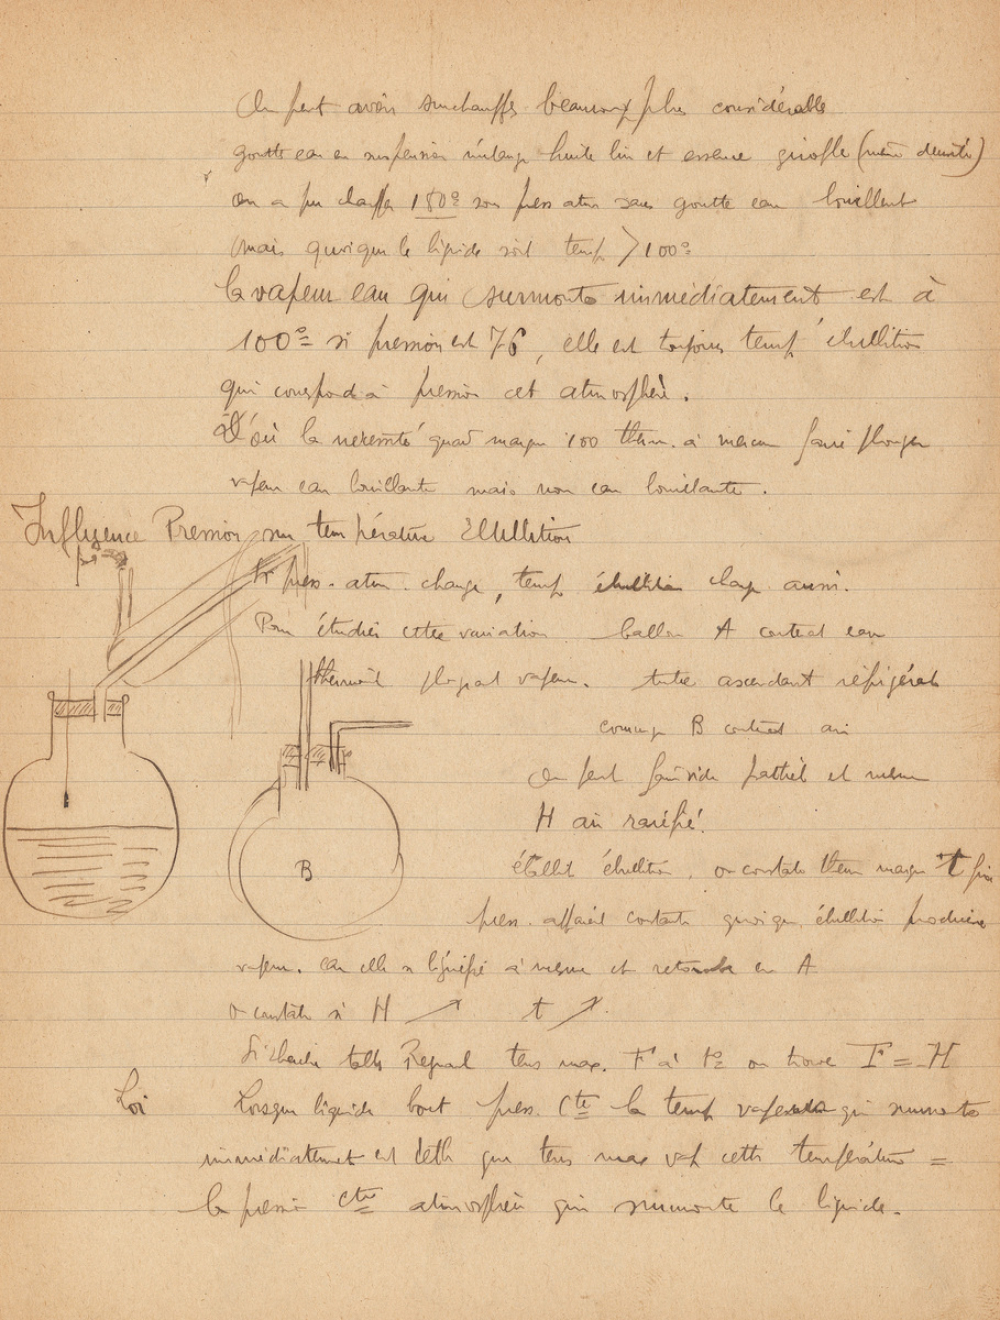 On peut avoir surchauffe beaucoup plus considérable
goutte eau en suspension mélange huile lin et essence girofle (même densité)
on a pu chauffer 180° sous press atm sans goutte eau bouillent
mais quoique le liquide soit temp > 100°
la vapeur eau qui surmonte immédiatement est à
100° si pression est 76, elle est toujours temp ébullition
qui correspond à pression cet atmosphère.
D'où la nécessité quand marque 100 therm. à mercure faire plonger
vapeur eau bouillante mais non eau bouillante.
Influence Pression sur température Ebullition
Si press. atm. change, temp ébullition change aussi.
Pour étudier cette variation ballon A contenant eau
thermomèt plongeant vapeur. tube ascendant réfrigérant
B contenant air
On peut faire vide partiel et même
H air raréfié.
B
établit ébullition, on constate therm marque t fixe
press. constante quoique ébullition produise
vapeur. car elle se liquéfie à mesure et retombe en A
on constate si H ↗ t ↗.
Si cherche table Regnault tens max. F à t° on trouve F = H
Loi Lorsque liquide bout press. Cte la temp vapeur qui surmonte
immédiatement est telle que tens max vap cette température =
la pression cte atmosphère qui surmonte le liquide.